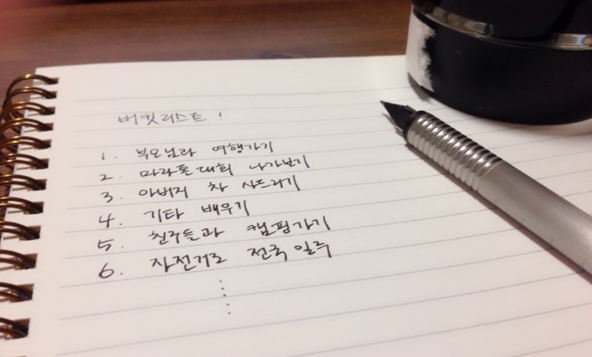 버킷리스트!
1. 부모님과 여행가기
2. 마라톤대회 나가보기
3. 아버지 차 사드리기
4. 기타 배우기
5. 친구들과 캠핑가기
6. 자전거로 전국일주
⋮